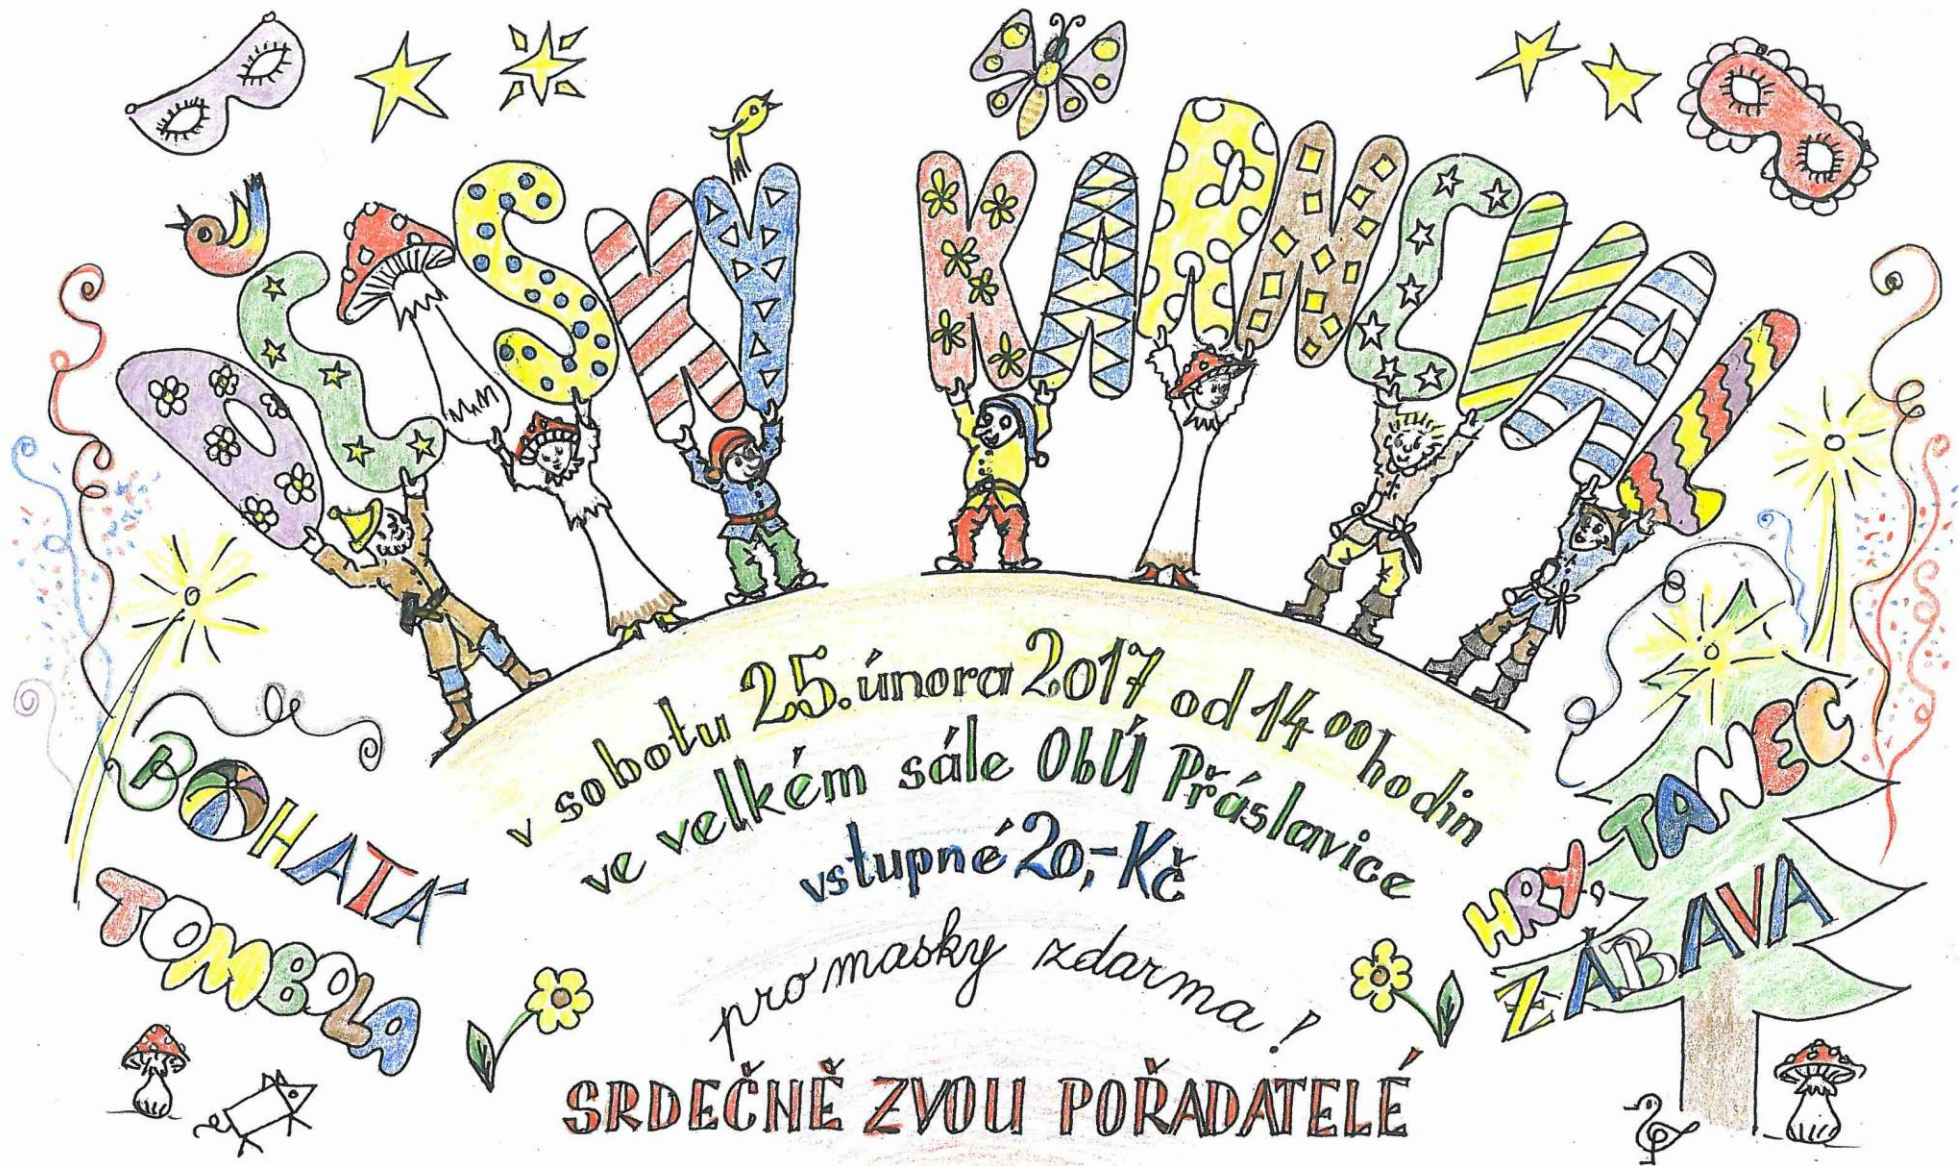 DĚTSKÝ KARNEVAL
v sobotu 25. února 2017 od 14⁰⁰ hodin
ve velkém sále ObÚ Přáslavice
vstupné 20,- Kč
pro masky zdarma!
SRDEČNĚ ZVOU POŘADATELÉ
BOHATÁ
TOMBOLA
HRY, TANEC
ZÁBAVA